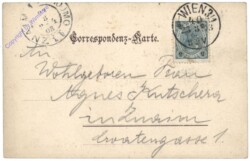 Correspondenz-Karte.
WIEN 2/1
An
Wohlgeboren Frau
Agnes Kutschera
in Znaim
Gartengasse 1